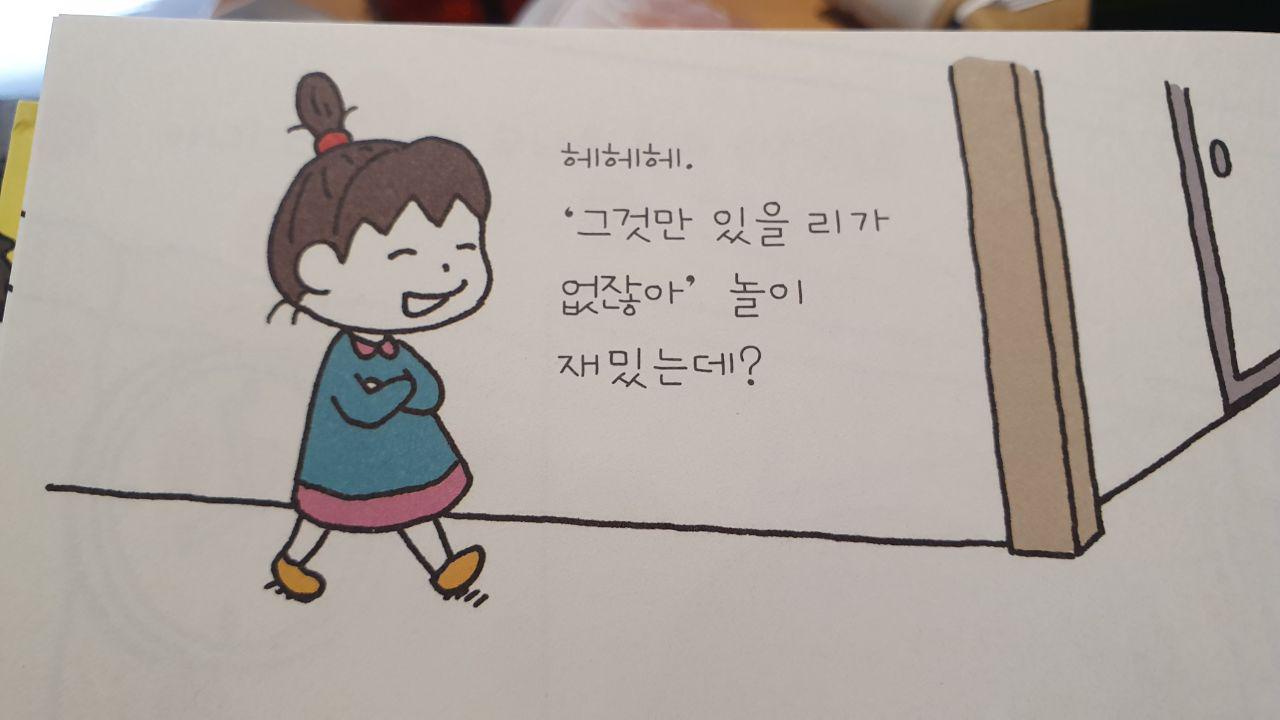 헤헤헤.
‘그것만 있을 리가
없잖아’ 놀이
재밌는데?